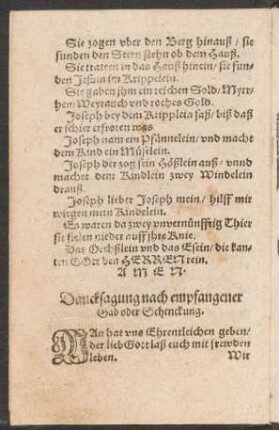 Sie zogen vber den Berg hinauß / sie
funden den Stern stehn ob dem Hauß.
Sie tratten in das Hauß hinein / sie fun-
den Jesum im Krippelein.
Sie gaben jhm ein reichen Sold / Myrr-
hen / Weyrauch vnd rothes Gold.
Joseph bey dem Kripplein saß / biß daß
er schier erfroren was
Joseph nam ein Pfännelein / vnd macht
dem Kind ein Müselein.
Joseph der zog sein Hößlein auß / vnnd
machet dem Kindlein zwey Windelein
drauß.
Joseph lieber Joseph mein / hilff mir
wiegen mein Kindelein.
Es waren da zwey vnvernünfftig Thier
sie fielen nieder auff jhre Knie.
Das Oechßlein vnd das Eselin / die kan-
ten GOtt den HERREN rein.
A M E N.
Dancksagung nach empfangener
Gab oder Schenckung.
MAn hat vns Ehrentleichen geben /
der lieb Gott laß euch mit frewden
leben. Wir